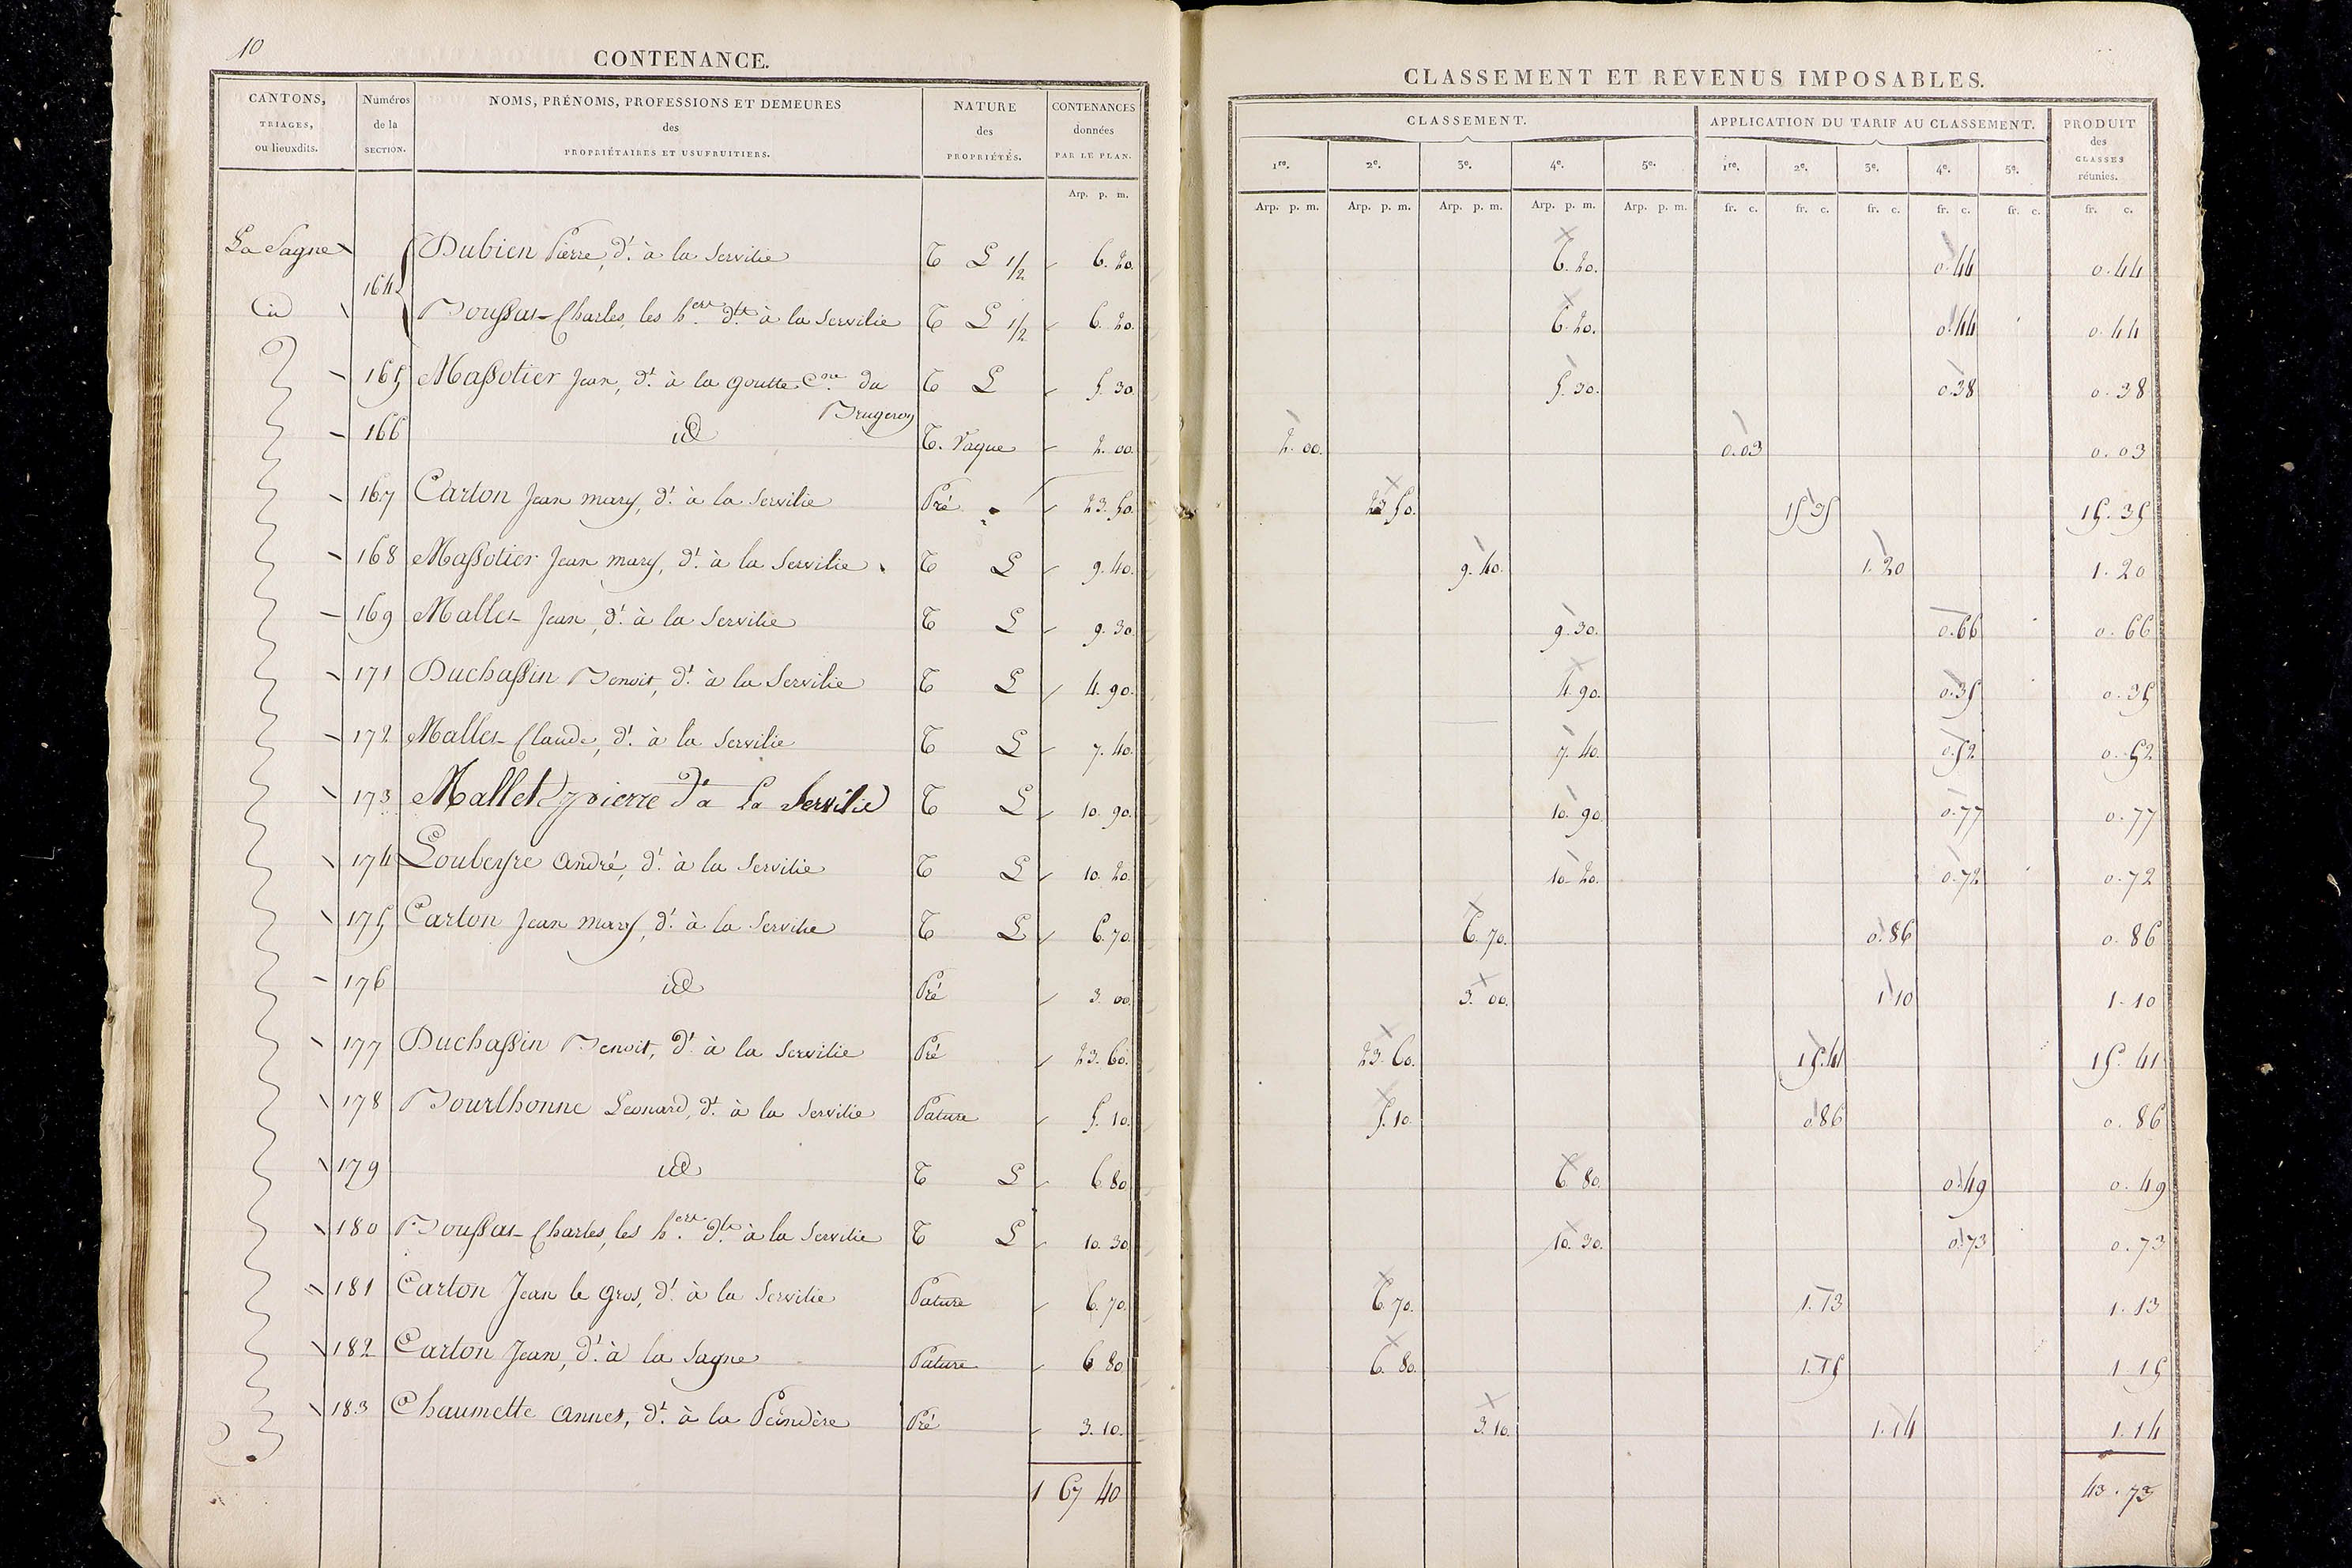 10
CONTENANCE.
CANTONS, TRIAGES, ou lieuxdits. | Numéros de la SECTION. | NOMS, PRÉNOMS, PROFESSIONS ET DEMEURES des PROPRIÉTAIRES ET USUFRUITIERS. | NATURE des PROPRIÉTÉS. | CONTENANCES données PAR LE PLAN.
Arp. p. m.
La Sagne 164 Dubien Pierre, dt. à la Servilie T L 1/2 6. 20.
id Boussat Charles, les hers dts à la Servilie T L 1/2 6. 20.
165 Massotier Jean, dt. à la Goutte Cne du Brugeron T L 5. 30
166 id T. Vague 2. 00
167 Carton Jean mary, dt. à la Servilie Pré 23. 50.
168 Massotier Jean mary, dt. à la Servilie T L 9. 40.
169 Mallet Jean, dt. à la Servilie T L 9. 30.
171 Duchassin Benoit, dt. à la Servilie T L 4. 90.
172 Mallet Claude, dt. à la Servilie T L 7. 40.
173 Mallet pierre dt a La Servilie T L 10. 90.
174 Loubeyre André, dt. à la Servilie T L 10. 20.
175 Carton Jean mary, dt. à la Servilie T L 6. 70
176 id Pré 3. 00.
177 Duchassin Benoit, dt. à la Servilie Pré 23. 60.
178 Bourlhonne Leonard, dt. à la Servilie Pature 5. 10.
179 id T L 6 80
180 Boussat Charles, les hers dts à la Servilie T L 10. 30
181 Carton Jean le Gros, dt. à la Servilie Pature 6. 70
182 Carton Jean, dt. à la Sagne Pature 6 80
183 Chaumette Annet, dt. à la Peindère Pré 3. 10.
1 67 40
CLASSEMENT ET REVENUS IMPOSABLES.
CLASSEMENT. | APPLICATION DU TARIF AU CLASSEMENT. | PRODUIT des CLASSES réunies.
1re. 2e. 3e. 4e. 5e. 1re. 2e. 3e. 4e. 5e.
Arp. p. m. Arp. p. m. Arp. p. m. Arp. p. m. Arp. p. m. fr. c. fr. c. fr. c. fr. c. fr. c. fr. c.
6. 20. 0. 44 0. 44
6. 20. 0. 44 0. 44
5. 30. 0. 38 0. 38
2. 00. 0. 03 0. 03
23 50. 15 35 15. 35
9. 40. 1. 20 1. 20
9. 30. 0. 66 0. 66
4. 90. 0. 35 0. 35
7. 40. 0. 52 0. 52
10. 90. 0. 77 0. 77
10 20. 0. 72 0. 72
6. 70. 0. 86 0. 86
3. 00. 1 10 1. 10
23. 60. 15. 41 15. 41
5. 10. 0 86 0. 86
6 80. 0. 49 0. 49
10. 30. 0. 73 0. 73
6. 70. 1. 13 1. 13
6. 80. 1. 15 1 15
3. 10. 1. 14 1. 14
43. 73